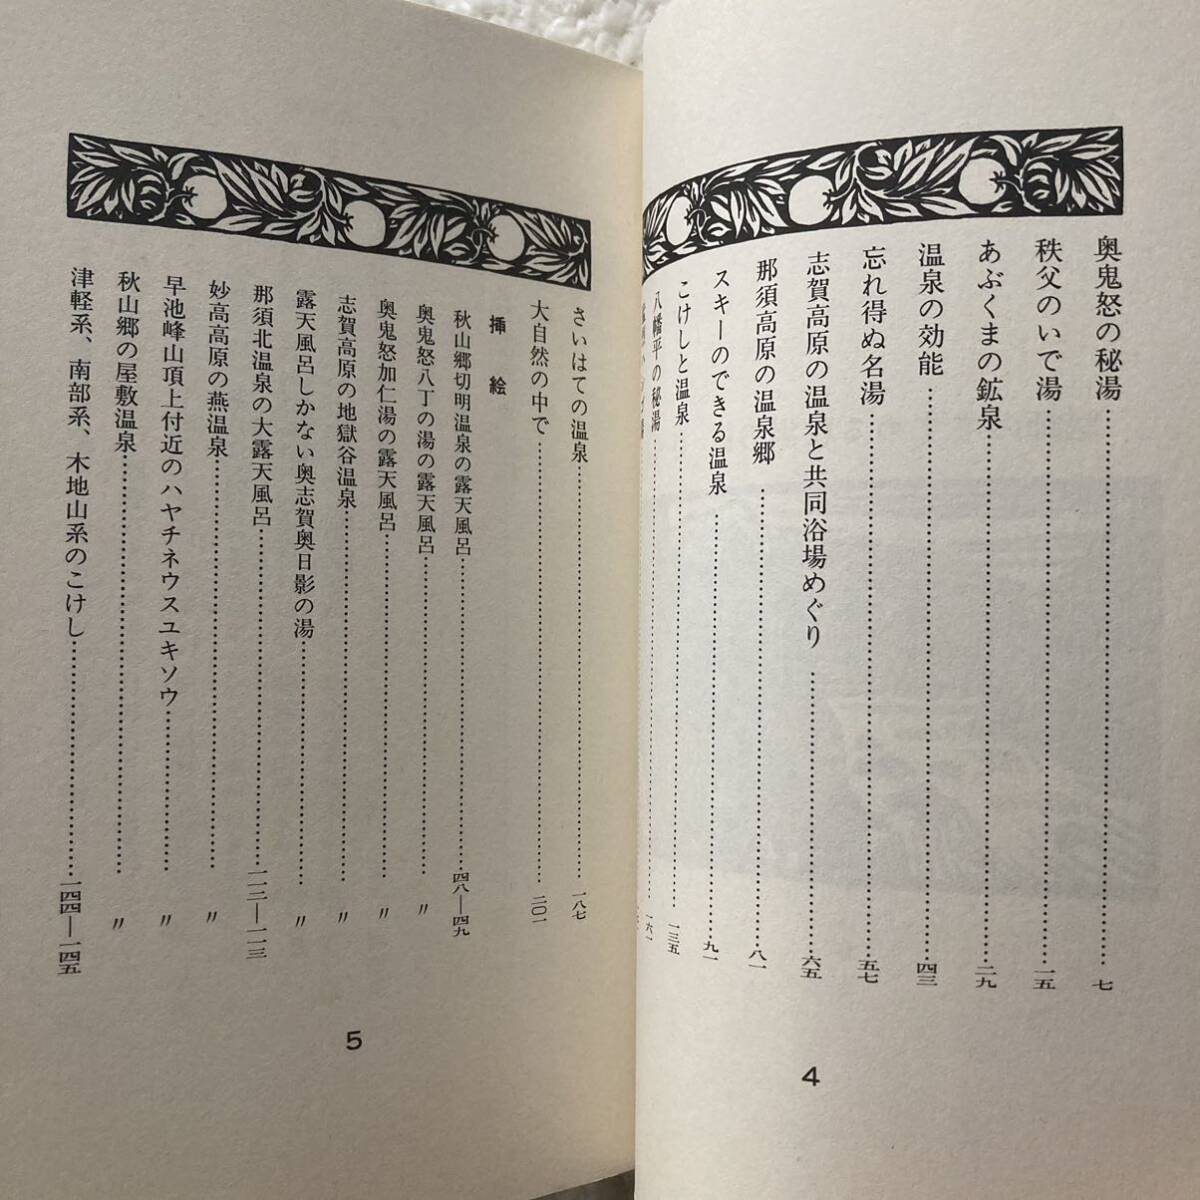 奥鬼怒の秘湯……七
秩父のいで湯……一五
あぶくまの鉱泉……二九
温泉の効能……四三
忘れ得ぬ名湯……五七
志賀高原の温泉と共同浴場めぐり……六五
那須高原の温泉郷……八一
スキーのできる温泉……九一
こけしと温泉……一三五
八幡平の秘湯……一六一
4
さいはての温泉……一八七
大自然の中で……二〇一
挿絵
秋山郷切明温泉の露天風呂……四八—四九
奥鬼怒八丁の湯の露天風呂……〃
奥鬼怒加仁湯の露天風呂……〃
志賀高原の地獄谷温泉……〃
露天風呂しかない奥志賀奥日影の湯……〃
那須北温泉の大露天風呂……一一二—一一三
妙高高原の燕温泉……〃
早池峰山頂上付近のハヤチネウスユキソウ……〃
秋山郷の屋敷温泉……〃
津軽系、南部系、木地山系のこけし……一四四—一四五
5